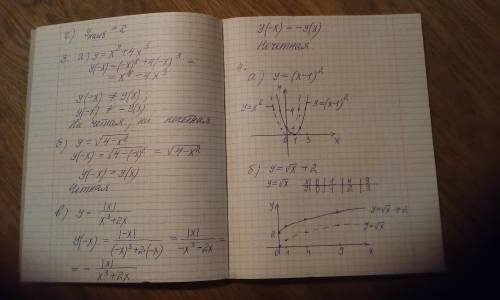 2) Yнаиб = 2
3. а) y = x² + 4x³
y(-x) = (-x)² + 4(-x)³ =
= x² - 4x³
y(-x) ≠ y(x),
y(-x) ≠ -y(x)
Ни четная, ни нечетная
б) y = √4-x²
y(-x) = √4-(-x)² = √4-x²
y(-x) = y(x)
Четная
в) y = |x| / x³+2x
y(-x) = |-x| / (-x)³+2·(-x) = |x| / -x³-2x =
= - |x| / x³+2x
y(-x) = -y(x)
Нечетная
4.
а) y = (x-1)²
y
y=x²
y=(x-1)²
4
1
0 1 3 x
б) y = √x + 2
y=√x
x 0 1 4 9
y 0 1 2 3
y
y=√x+2
2
y=√x
0 1 4 9 x